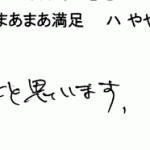 まあまあ満足 ハ やや
と思います,